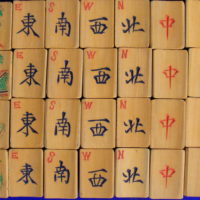 E S W N
東 南 西 北 中
E S W N
東 南 西 北 中
E S W N
東 南 西 北 中
E S W N
東 南 西 北 中